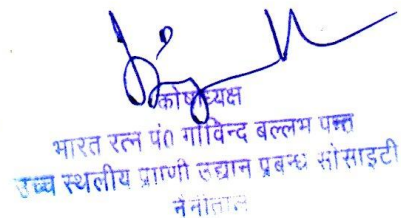 कोषाध्यक्ष
भारत रत्न पं0 गोविन्द बल्लभ पन्त
उच्च स्थलीय प्राणी उद्यान प्रबन्ध सोसाइटी
नैनीताल